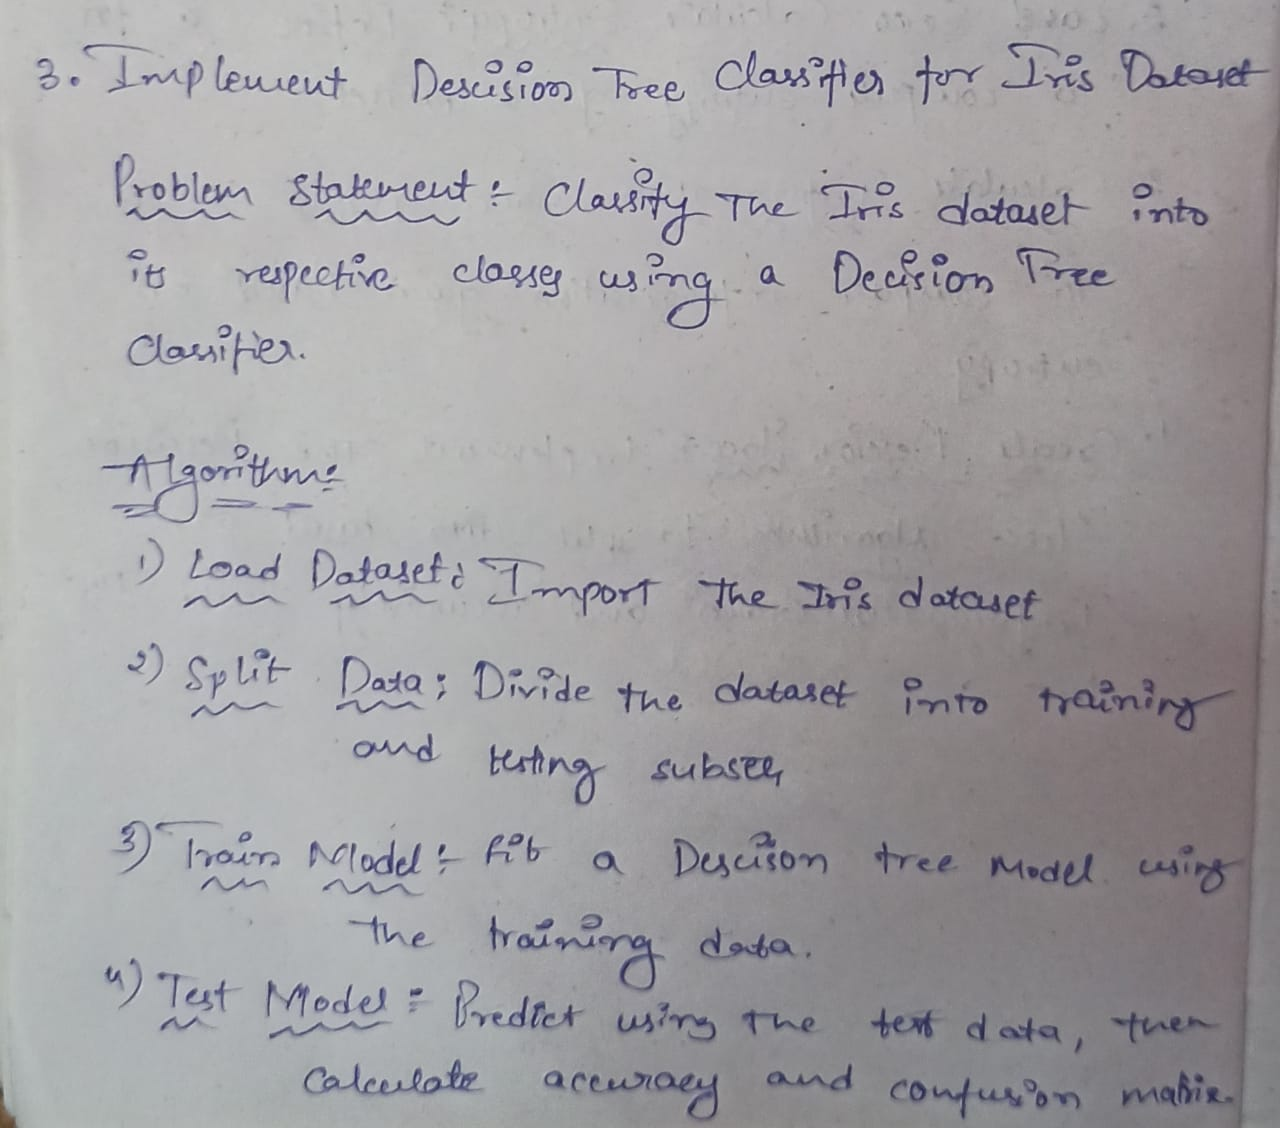 3. Implement Descision Tree Classifier for Iris Dataset
Problem Statement :- Classify The Iris dataset into
its respective classes using a Decision Tree
Classifier.
Algorithm:-
1) Load Dataset: Import The Iris dataset
2) Split Data: Divide the dataset into training
and testing subsets
3) Train Model :- Fit a Descison tree Model using
the training data.
4) Test Model :- Predict using the test data, then
Calculate accuracy and confusion matrix.